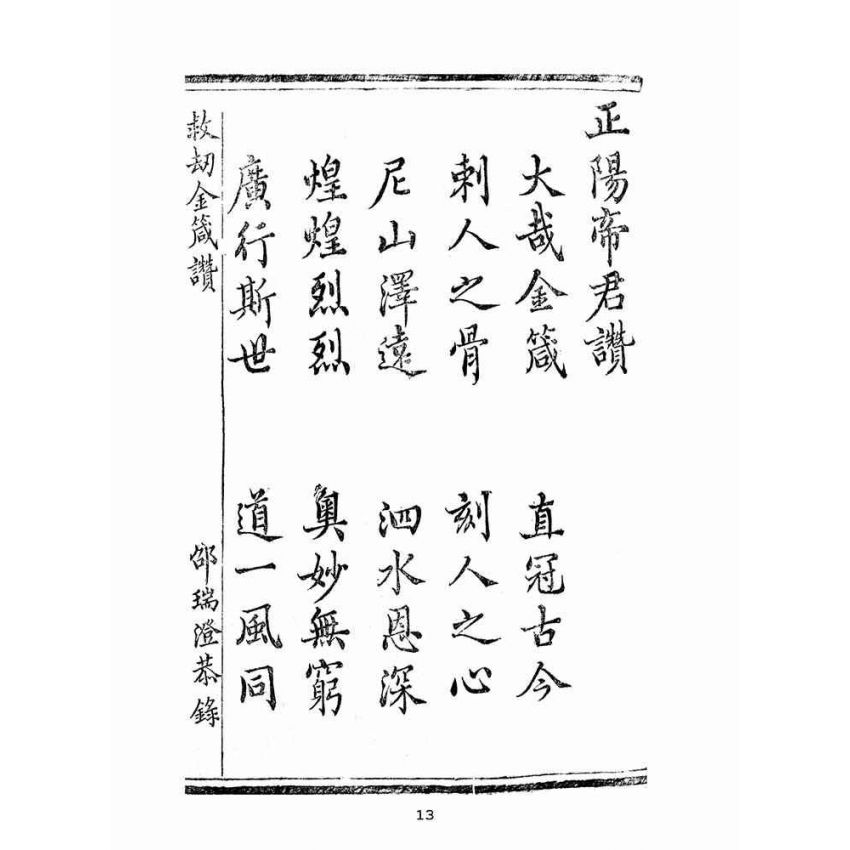 正陽帝君讚
大哉金箴 直冠古今
刺人之骨 刻人之心
尼山澤遠 泗水恩深
煌煌烈烈 奧妙無窮
廣行斯世 道一風同
救劫金箴讚 邵瑞澄恭錄
13